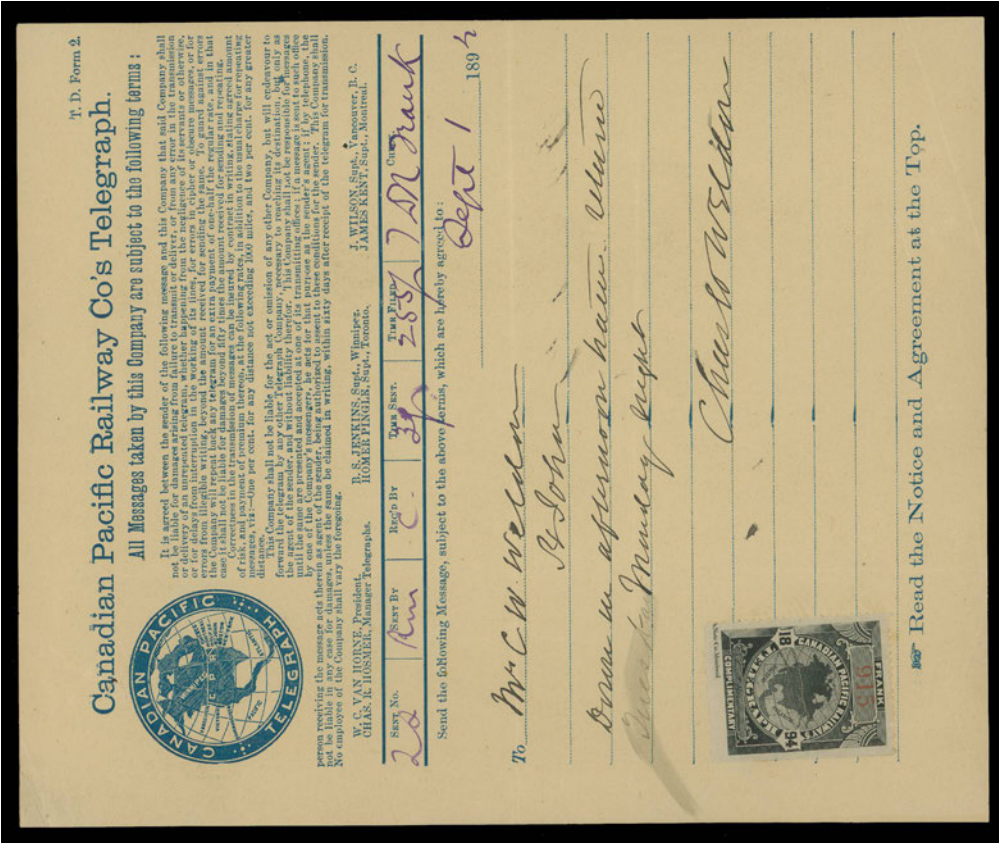 T. D. Form 2.
Canadian Pacific Railway Co's Telegraph.
All Messages taken by this Company are subject to the following terms :
CANADIAN PACIFIC
TELEGRAPH
It is agreed between the sender of the following message and this Company that said Company shall
not be liable for damages arising from failure to transmit or deliver, or from any error in the transmission
or delivery of an unrepeated telegram, whether happening from the negligence of its servants or otherwise,
or for delays from interruption in the working of its lines, for errors in cipher or obscure messages, or for
errors from illegible writing, beyond the amount received for sending the same. To guard against errors
the Company will repeat back any telegram for an extra payment of one-half the regular rate, and in that
case it shall not be liable for damages beyond fifty times the amount received for sending and repeating.
Correctness in the transmission of messages can be insured by contract in writing, stating agreed amount
of risk, and payment of premium thereon, at the following rates, in addition to the usual charge for repeating
messages, viz:—One per cent. for any distance not exceeding 1000 miles, and two per cent. for any greater
distance.
This Company shall not be liable for the act or omission of any other Company, but will endeavour to
forward the telegram by any other Telegraph Company, necessary to reaching its destination, but only as
the agent of the sender, and without liability therefor. This Company shall not be responsible for messages
until the same are presented and accepted at one of its transmitting offices; if a message is sent to such office
by one of the Company's messengers, he acts for that purpose as the sender's agent; if by telephone, the
person receiving the message acts therein as agent of the sender, being authorized to assent to these conditions for the sender. This Company shall
not be liable in any case for damages, unless the same be claimed in writing, within sixty days after receipt of the telegram for transmission.
No employee of the Company shall vary the foregoing.
W. C. VAN HORNE, President.
CHAS. R. HOSMER, Manager Telegraphs.
B. S. JENKINS, Supt., Winnipeg.
HOMER PINGLE, Supt., Toronto.
J. WILSON, Supt., Vancouver, B. C.
JAMES KENT, Supt., Montreal.
SENT No. SENT BY REC'D BY TIME SENT. TIME FILED. CHECK.
22 Rm C 255 DH Frank
Send the following Message, subject to the above terms, which are hereby agreed to :
Sept 1 189
To Mr C. W. Weldon
St John
Down in afternoon have
Monday night
Chas W Weldon
FRANK
915
CANADIAN PACIFIC RAILWAY
18 94
COMPLIMENTARY
Read the Notice and Agreement at the Top.